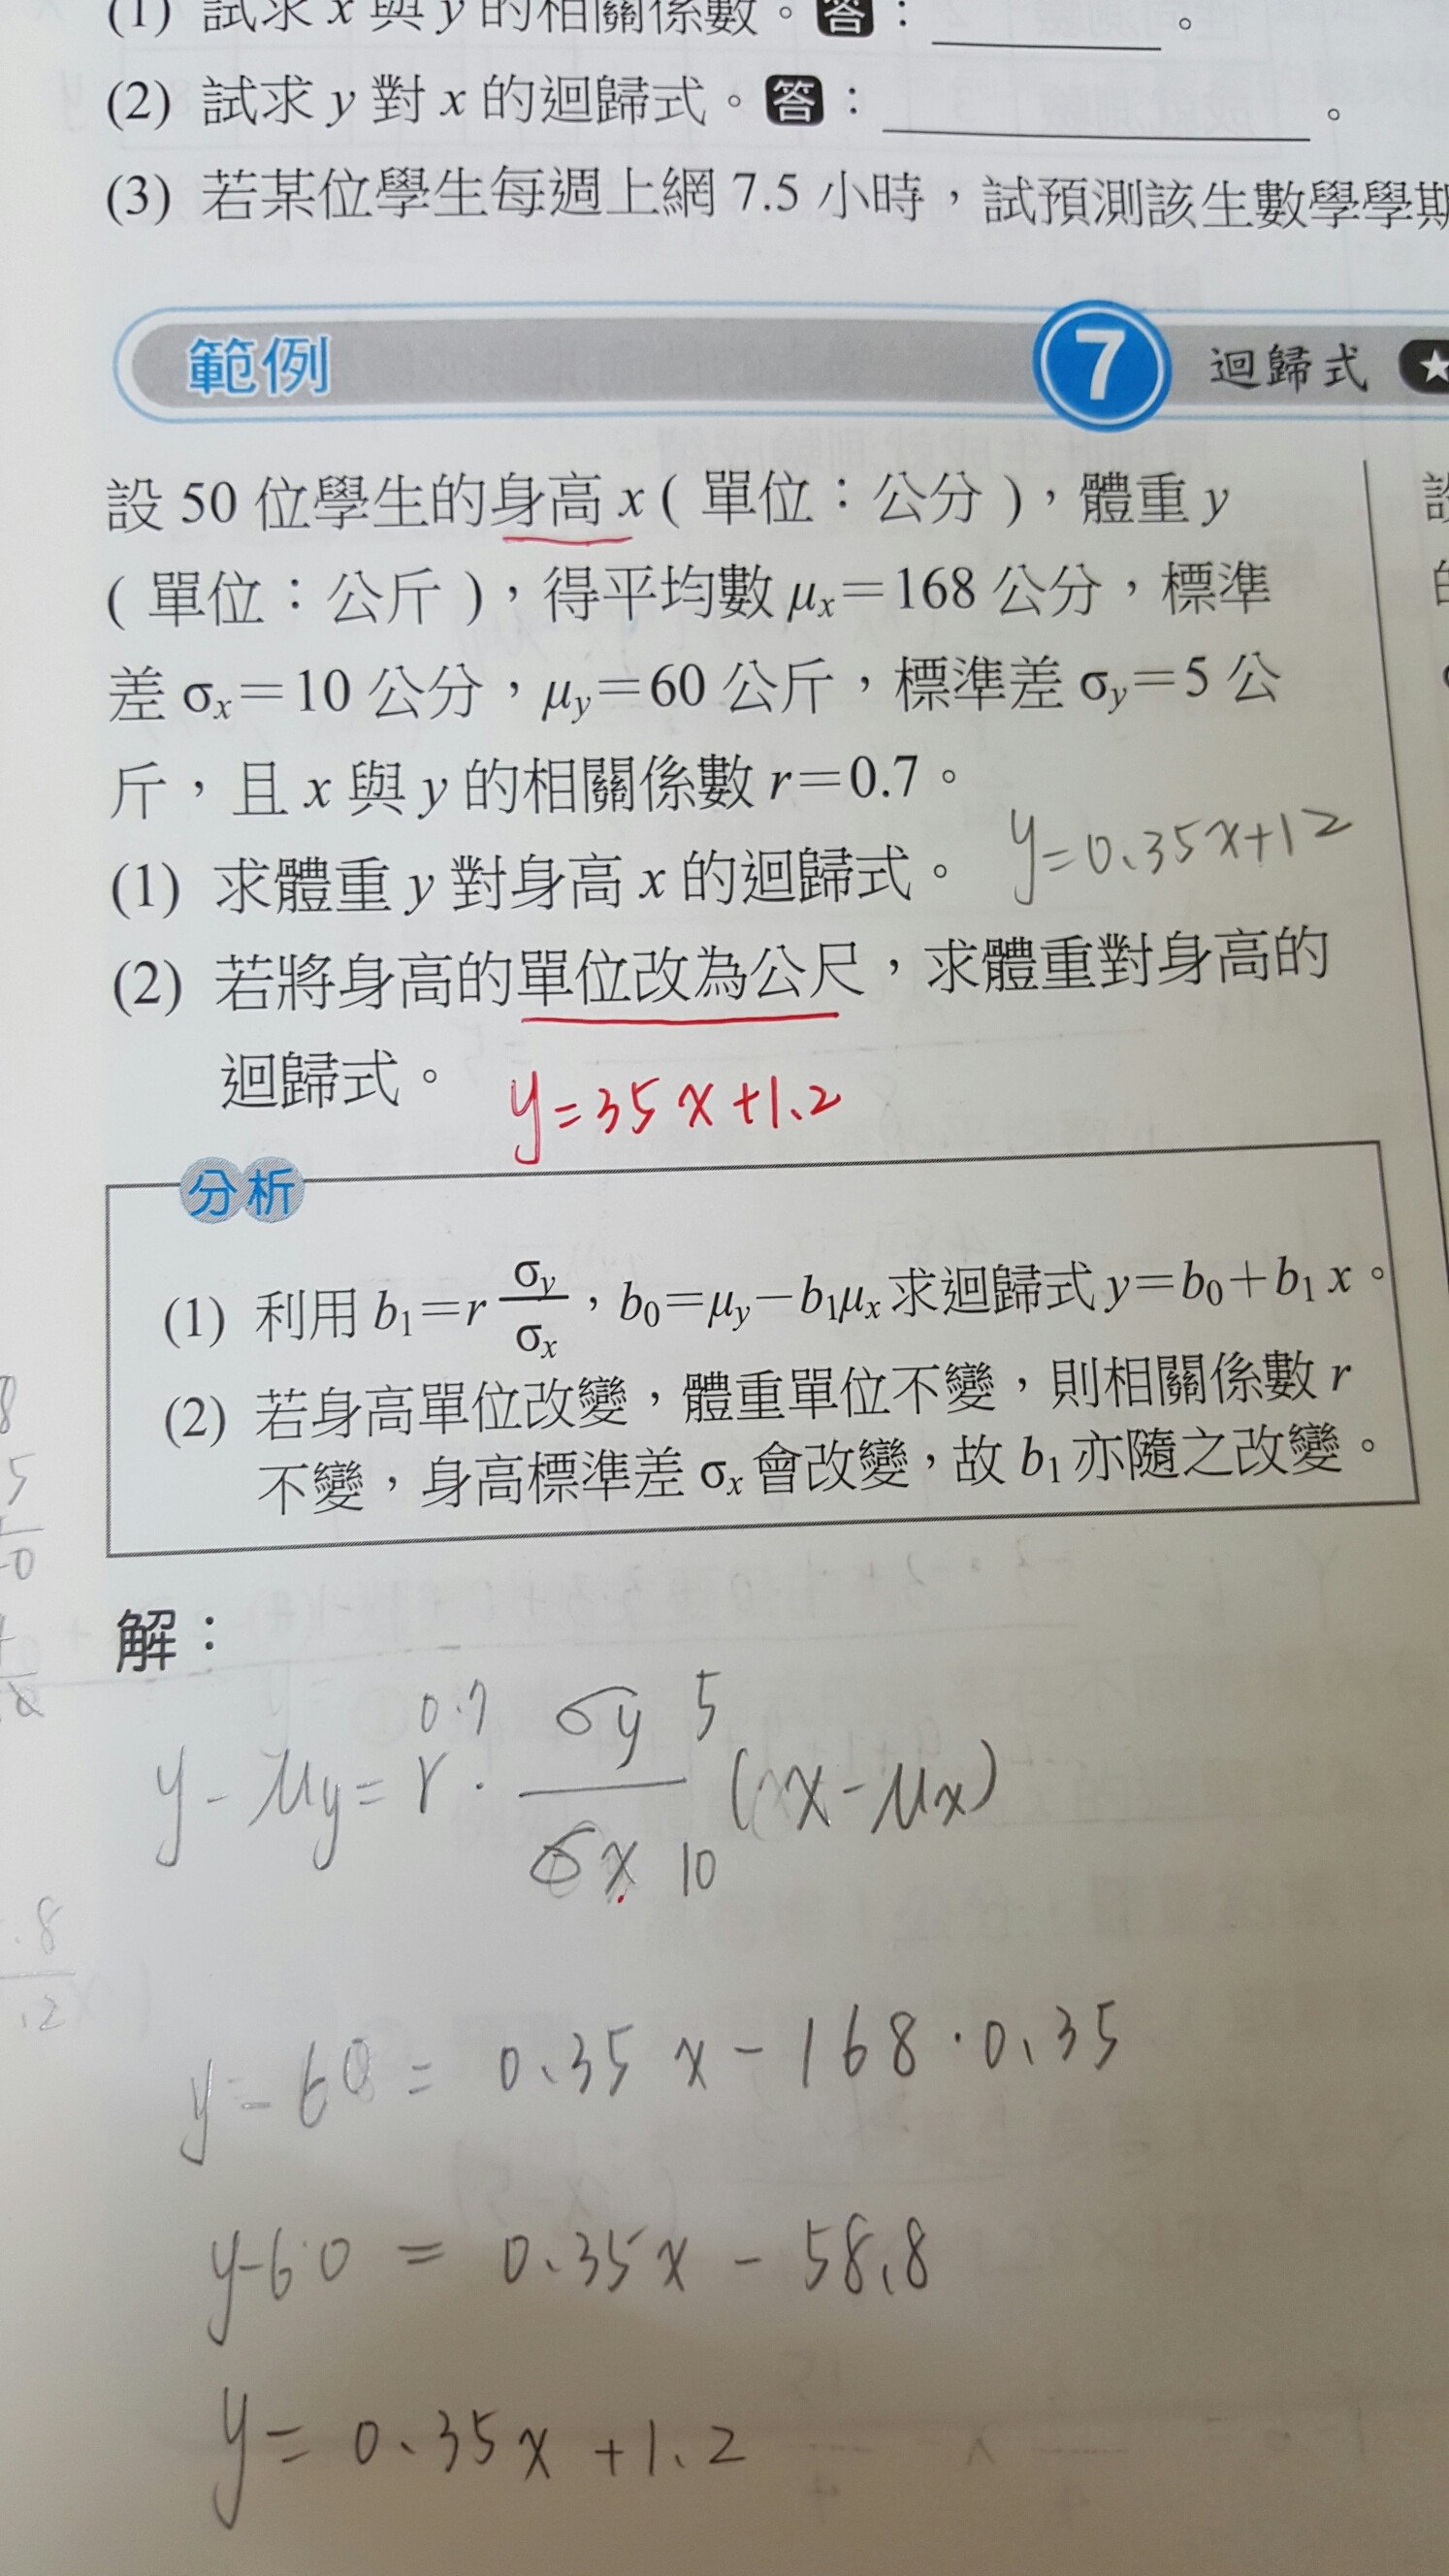 (1) 試求 x 與 y 的相關係數。答：________。
(2) 試求 y 對 x 的迴歸式。答：________。
(3) 若某位學生每週上網 7.5 小時，試預測該生數學學期
範例 7 迴歸式 ★
設 50 位學生的身高 x ( 單位：公分 )，體重 y
( 單位：公斤 )，得平均數 μx=168 公分，標準
差 σx=10 公分，μy=60 公斤，標準差 σy=5 公
斤，且 x 與 y 的相關係數 r=0.7。
(1) 求體重 y 對身高 x 的迴歸式。 y=0.35x+12
(2) 若將身高的單位改為公尺，求體重對身高的
迴歸式。 y=35x+1.2
分析
(1) 利用 b1=r σy/σx，b0=μy−b1μx 求迴歸式 y=b0+b1 x。
(2) 若身高單位改變，體重單位不變，則相關係數 r
不變，身高標準差 σx 會改變，故 b1 亦隨之改變。
解：
0.7 5
y-μy=r·σy/σx(x-μx)
10
y-60=0.35x-168·0.35
y-60=0.35x-58.8
y=0.35x+1.2